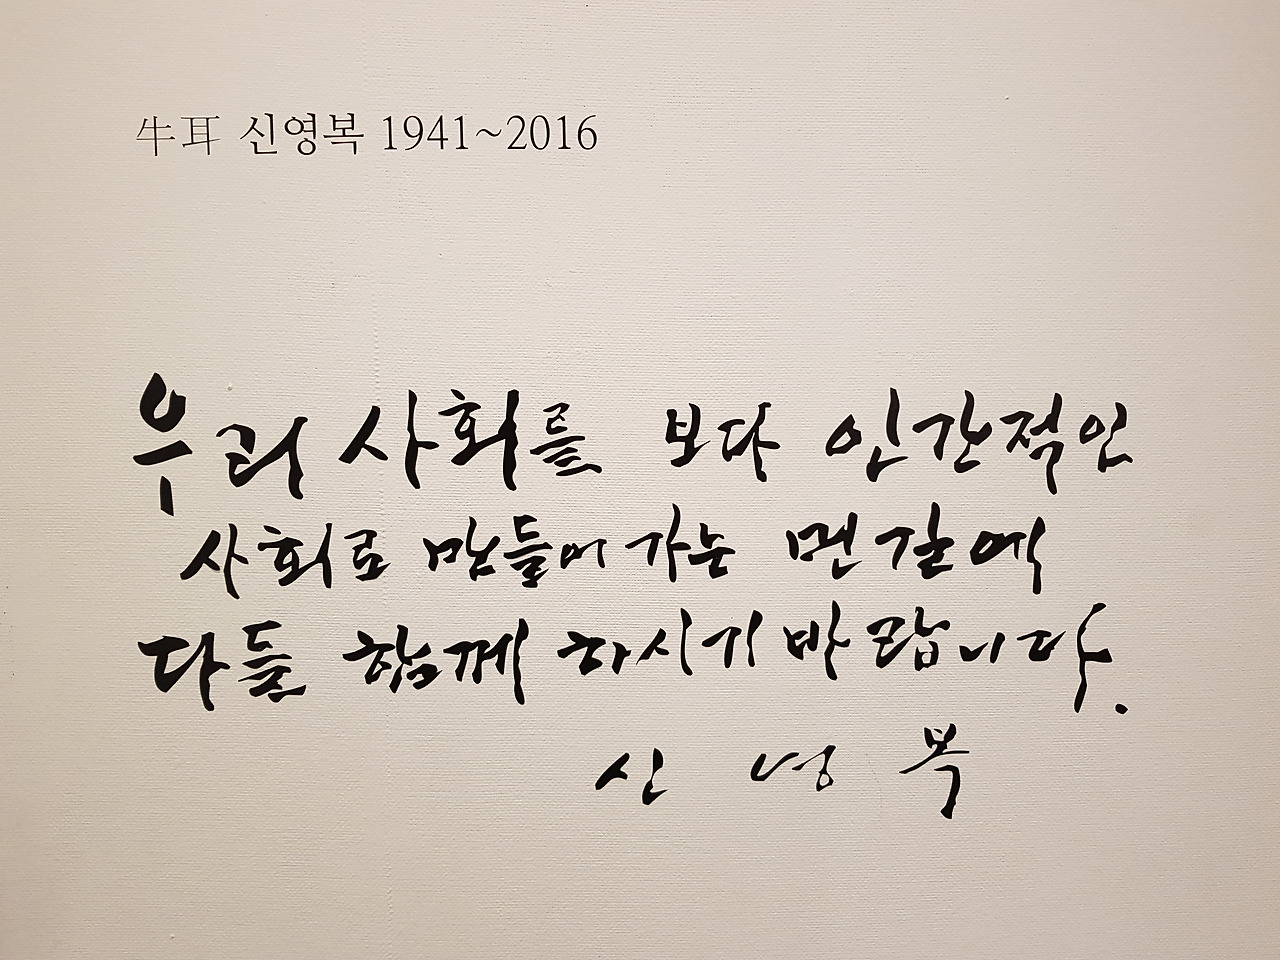 牛耳 신영복 1941~2016
우리 사회를 보다 인간적인
사회로 만들어 가는 먼길에
다들 함께 하시기 바랍니다.
신 영 복